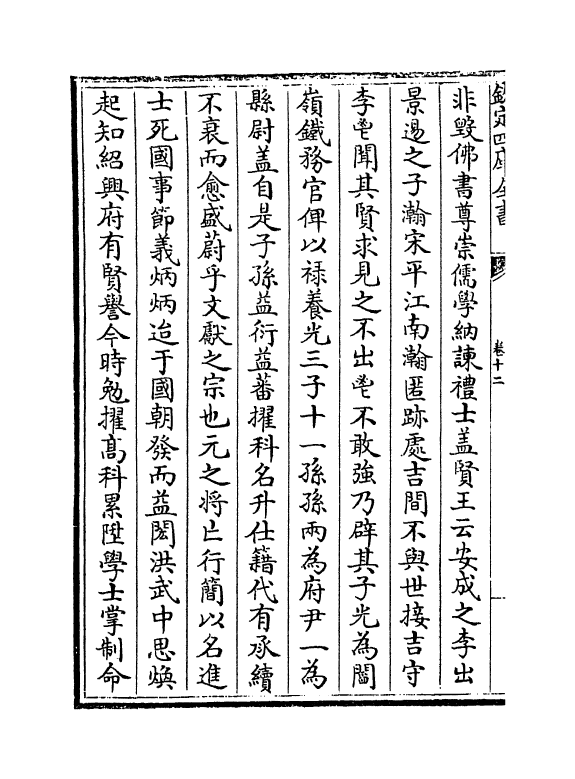 欽定四庫全書
卷十二
非毀佛書尊崇儒學納諫禮士盖賢王云安成之李出
景逷之子瀚宋平江南瀚匿跡處吉間不與世接吉守
李㞧聞其賢求見之不出㞧不敢強乃辟其子光為闔
嶺鐵務官俾以禄養光三子十一孫孫兩為府尹一為
縣尉盖自是子孫益衍益蕃擢科名升仕籍代有承續
不衰而愈盛蔚乎文獻之宗也元之將亡行簡以名進
士死國事節義炳炳迨于國朝發而益閎洪武中思煥
起知紹興府有賢譽今時勉擢髙科累陞學士掌制命